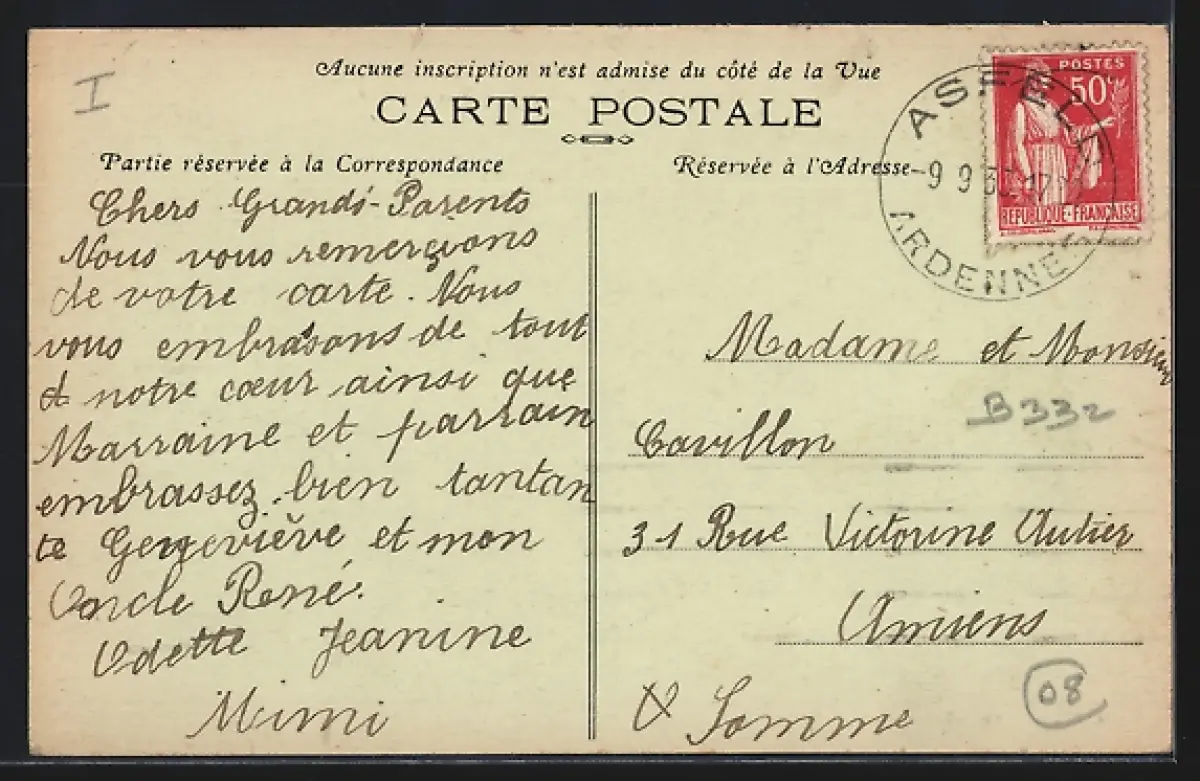 I
Aucune inscription n'est admise du côté de la Vue
CARTE POSTALE
Partie réservée à la Correspondance
Réservée à l'Adresse
POSTES
50c
REPUBLIQUE·FRANÇAISE
ASFELD
-9 9 3
ARDENNES
Chers Grands-Parents
Nous vous remerçions
de votre carte. Nous
vous embrasons de tout
notre cœur ainsi que
Marraine et parrain
embrassez bien tantan
te Geneviève et mon
Oncle René.
Odette Jeanine
Mimi
Madame et Monsieur
B332
Cavillon
31 Rue Victorine Autier
Amiens
Somme
08